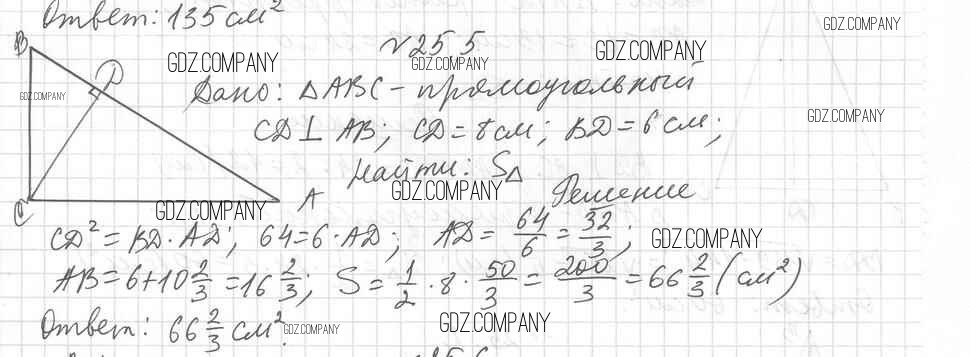 Ответ: 135 см²
№ 255
Дано: △ABC – прямоугольный
CD⊥AB; CD = 8 см; BD = 6 см;
Найти: S△
Решение
CD² = BD · AD; 64 = 6 · AD; AD = 64/6 = 32/3;
AB = 6 + 10 2/3 = 16 2/3; S = 1/2 · 8 · 50/3 = 200/3 = 66 2/3 (см²)
Ответ: 66 2/3 см².
B
D
C
A
GDZ.COMPANY
GDZ.COMPANY
GDZ.COMPANY
GDZ.COMPANY
GDZ.COMPANY
GDZ.COMPANY
GDZ.COMPANY
GDZ.COMPANY
GDZ.COMPANY
GDZ.COMPANY
GDZ.COMPANY